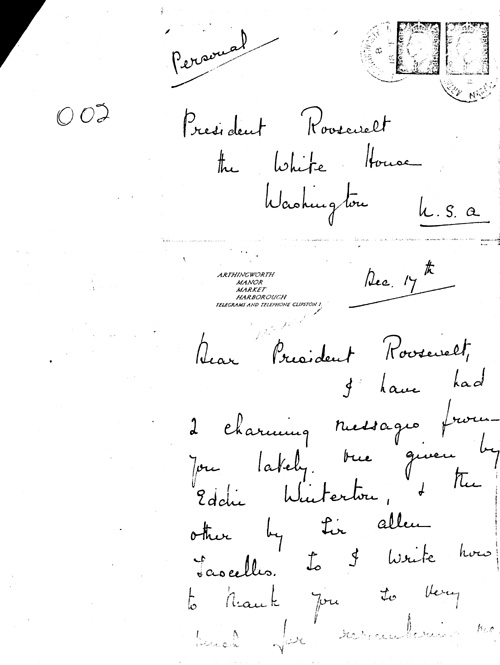 Personal
002
President Roosevelt
the White House
Washington
U.S.A
ARTHINGWORTH
MANOR
MARKET
HARBOROUGH
TELEGRAMS AND TELEPHONE CLIPSTON 1
Dec. 17th
Dear President Roosevelt,
I have had
2 charming messages from
you lately. One given by
Eddie Winterton, & the
other by Sir Allen
Lascelles. So I write now
to thank you so very
much for remembering me